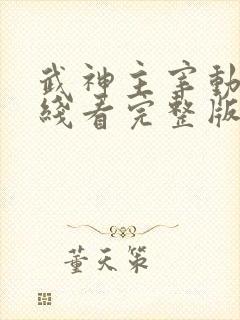 武神主宰動
綫看完整版
董天策